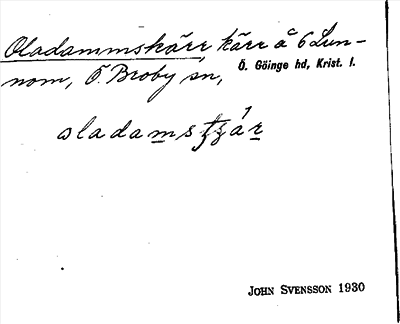 Oladammskärr, kärr å 6 Lun-
nom, Ö. Broby sn, Ö. Göinge hd, Krist. l.
JOHN SVENSSON 1930